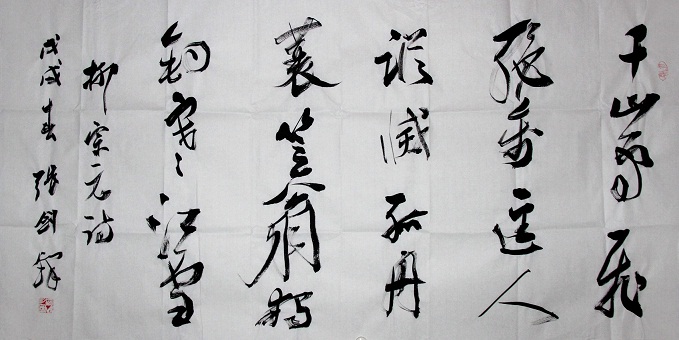 千山鳥飛
絕萬逕人
蹤滅孤舟
蓑笠翁獨
釣寒江雪
柳宗元詩
戊戌春張劍